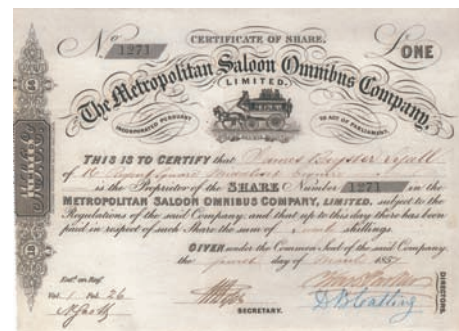 CERTIFICATE OF SHARE.
No. 1271
£ONE
The Metropolitan Saloon Omnibus Company,
LIMITED.
INCORPORATED PURSUANT
TO ACT OF PARLIAMENT.
THIS IS TO CERTIFY that James
of
is the Proprietor of the SHARE Number 1271 in the
METROPOLITAN SALOON OMNIBUS COMPANY, LIMITED. subject to the
Regulations of the said Company; and that up to this day there has been
paid in respect of such Share the sum of shillings.
GIVEN under the Common Seal of the said Company
the fourth day of March 1857
Entd. on Regr.
Vol. 1 Fol. 26
SECRETARY.
DIRECTORS.